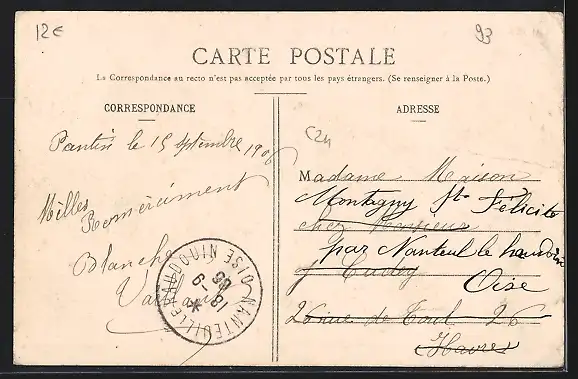 12€
93
CARTE POSTALE
La Correspondance au recto n'est pas acceptée par tous les pays étrangers. (Se renseigner à la Poste.)
CORRESPONDANCE
ADRESSE
C24
Pantin le 15 Septembre 1906
Milles
Remerciment
Blanche
NANTEUIL-LE-HAUDOUIN OISE
18 -9
06
Madame Maison
Montagny Ste Félicité
chez Monsieur
par Nanteuil le haudoin
Oise
26 rue de Toul 26
Havre